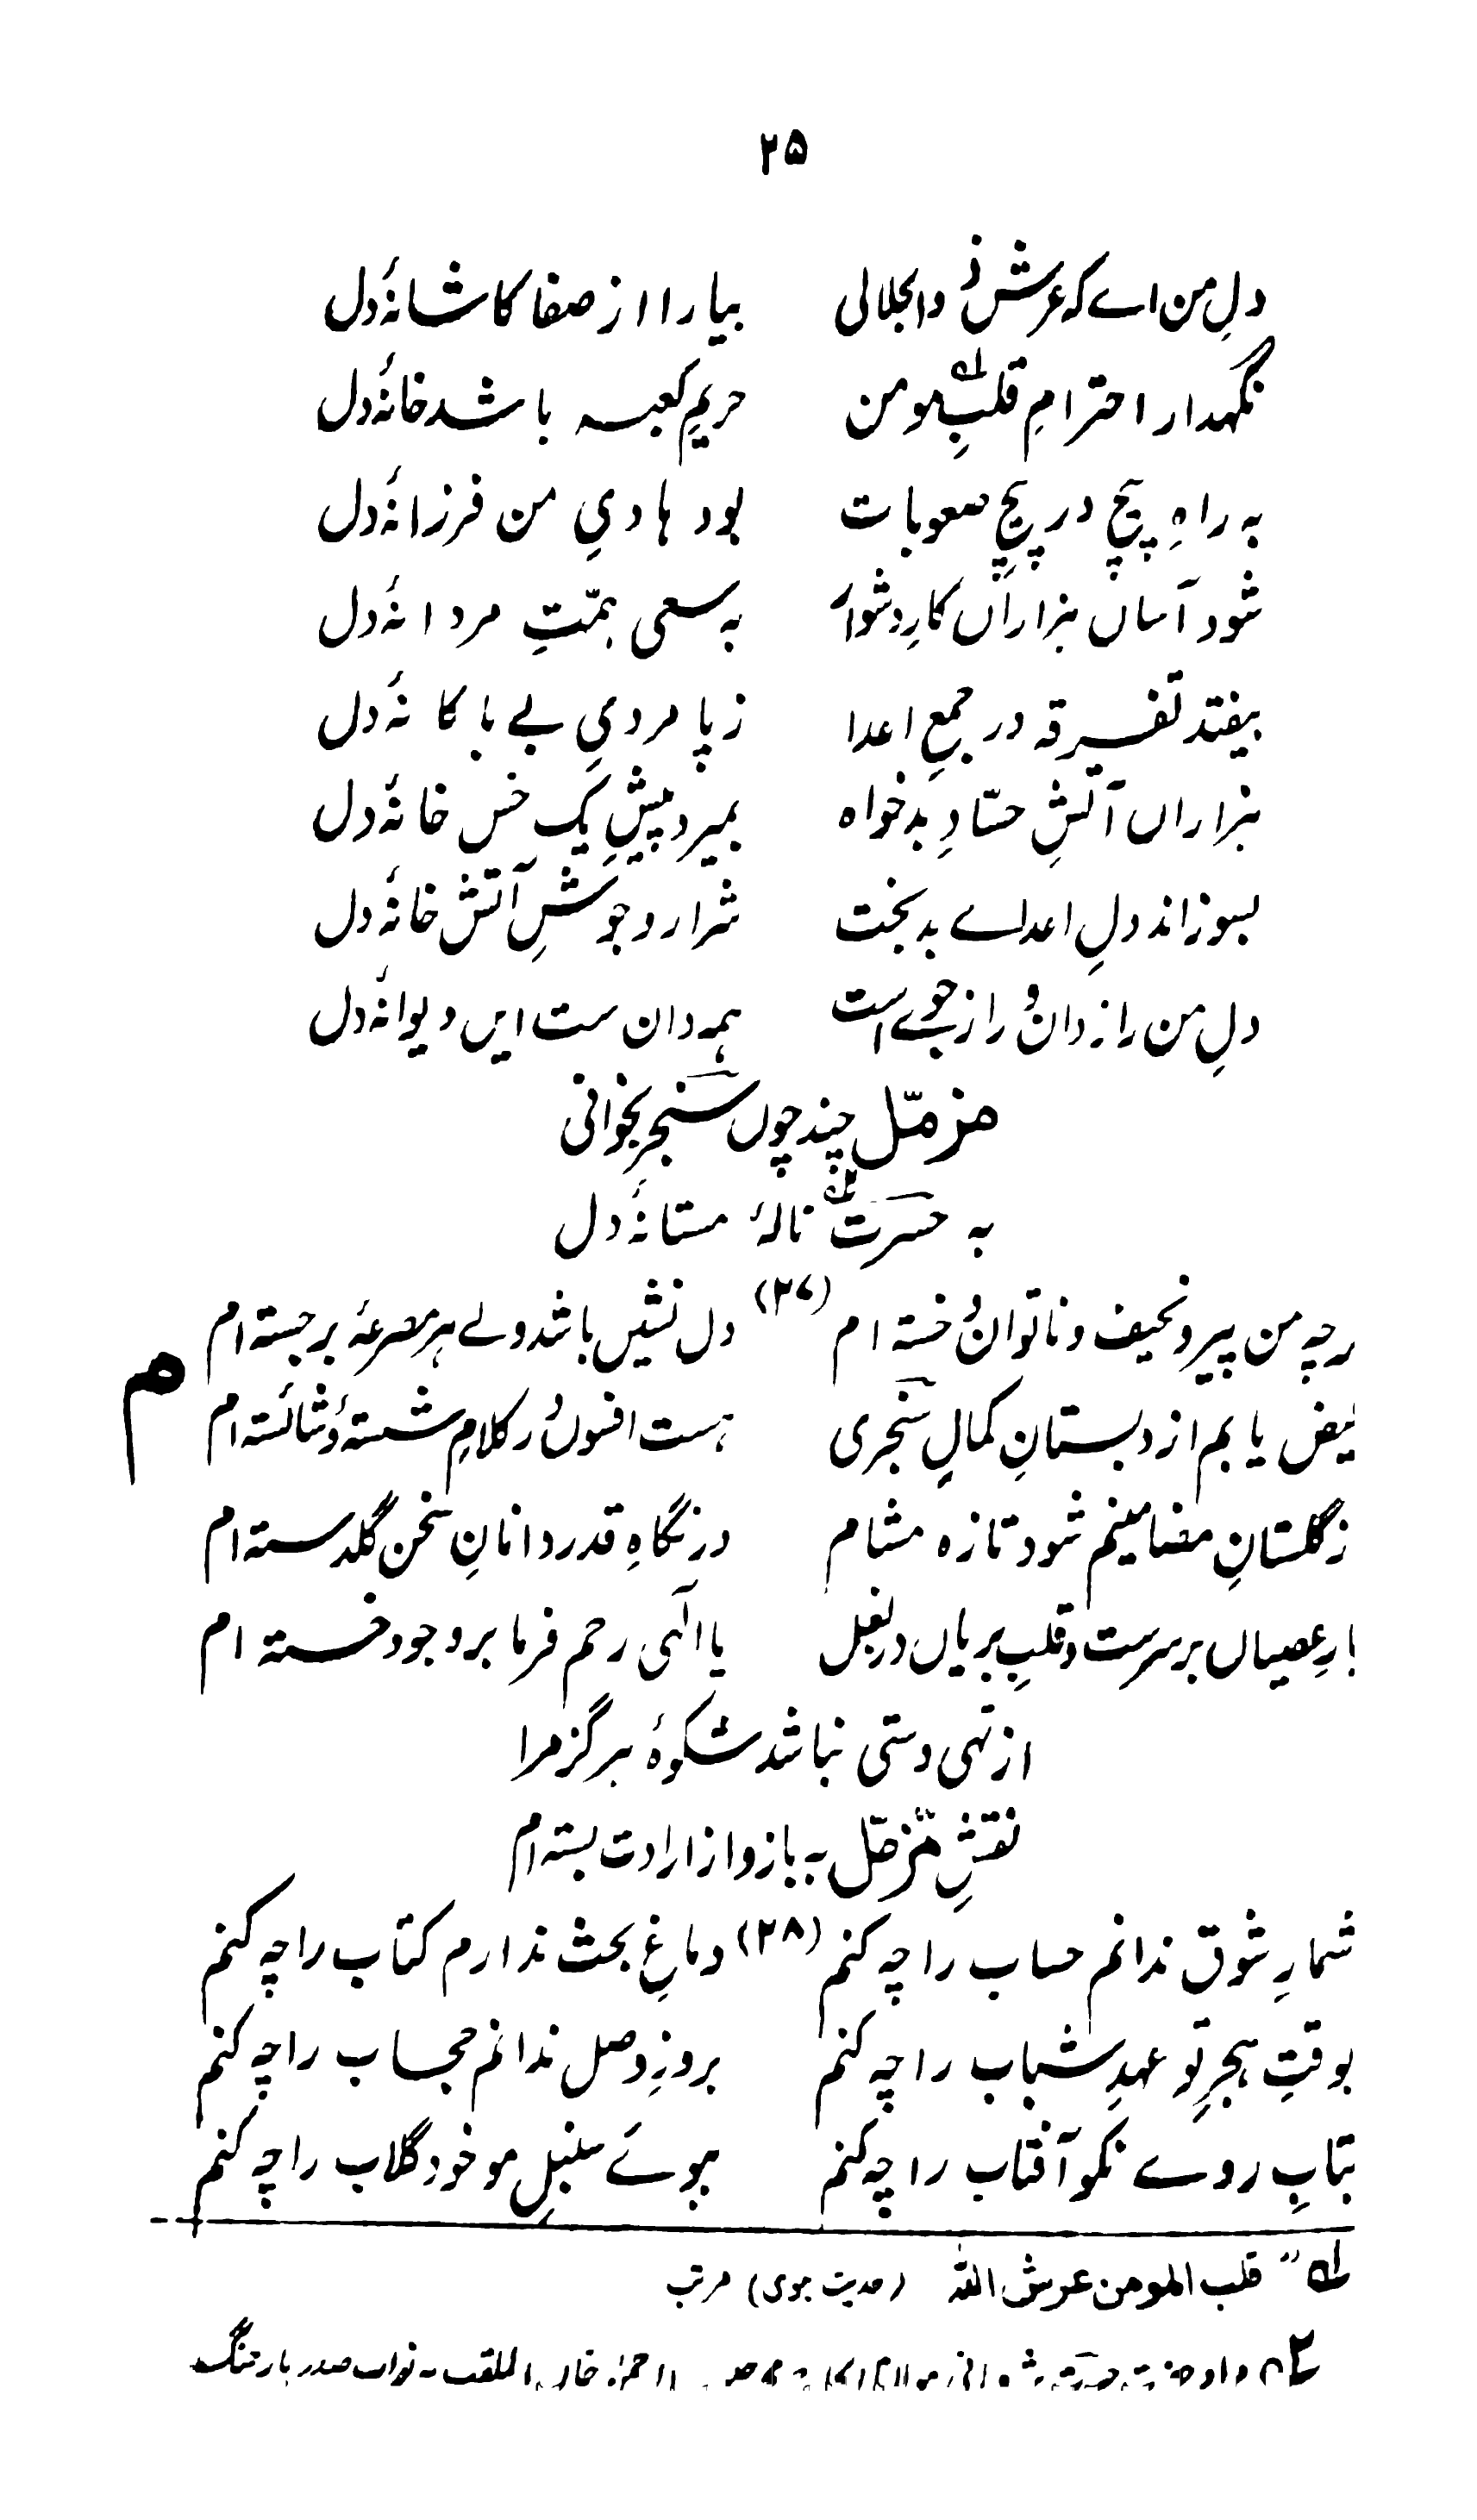 ۲۵
دلِ من اے کہ عرشِ ذوالجلالی بیارا از صفا کاشانۂ دل
نگہدار احترامِ قلبِ مومن حریمِ کعبہ باشد خانۂ دل
بہ راہِ پیچ در پیچِ صعوبات بود ہادیِ من فرزانۂ دل
شود آساں ہزاراں کارِ دشوار بہ سعی ہمّتِ مردانۂ دل
بیفتد تفرقہ در جمعِ اعدا ز پامردیِ بے باکانۂ دل
ہزاراں آتشِ حسّادِ بدخواہ بمیرد پیشِ یک خس خانۂ دل
بسوزاند دلِ اعداے بدبخت شرارِ جوششِ آتش خانۂ دل
دلِ من رازدان و راز جوے ست ہمہ دان ست ایں دیوانۂ دل
مزمّل چند چوں سنجر بخوانی
بہ حسرت نالۂ مستانۂ دل
(۲۷)
ہرچہ من پیر و نحیف و ناتوان و خستہ ام دل نشیں باشد ولے ہر مصرعۂ برجستہ ام
فیض یابم از دبستانِ کمالِ سنجری ہست افسوں در کلامِ شستہ و شائستہ ام
ز گلستانِ مضامینم شود تازہ مشام در نگاہِ قدردانانِ سخن گلدستہ ام
بارِ عصیاں بر سرست و قلبِ بریاں در بغل یا الٰہی رحم فرما بر وجودِ خستہ ام
از تہی دستی نباشد شکوۂ ہرگز مرا
نقشِ مزمّل بہ بازو از ارادت بستہ ام
(۲۸)
شمارِ شوق ندانم حساب را چہ کنم دماغِ بحث ندارم کتاب را چہ کنم
بوقتِ ہجرِ تو عہدِ شباب را چہ کنم بروزِ وصل ندانم حجاب را چہ کنم
بتابِ روے نکو آفتاب را چہ کنم ببوے سنبلِ مو خود گلاب را چہ کنم
۱ "قلب المومن عرش اللہ (حدیث نبوی) مرتب
۲ خاں الملقب بہ نواب صدر یار جنگ